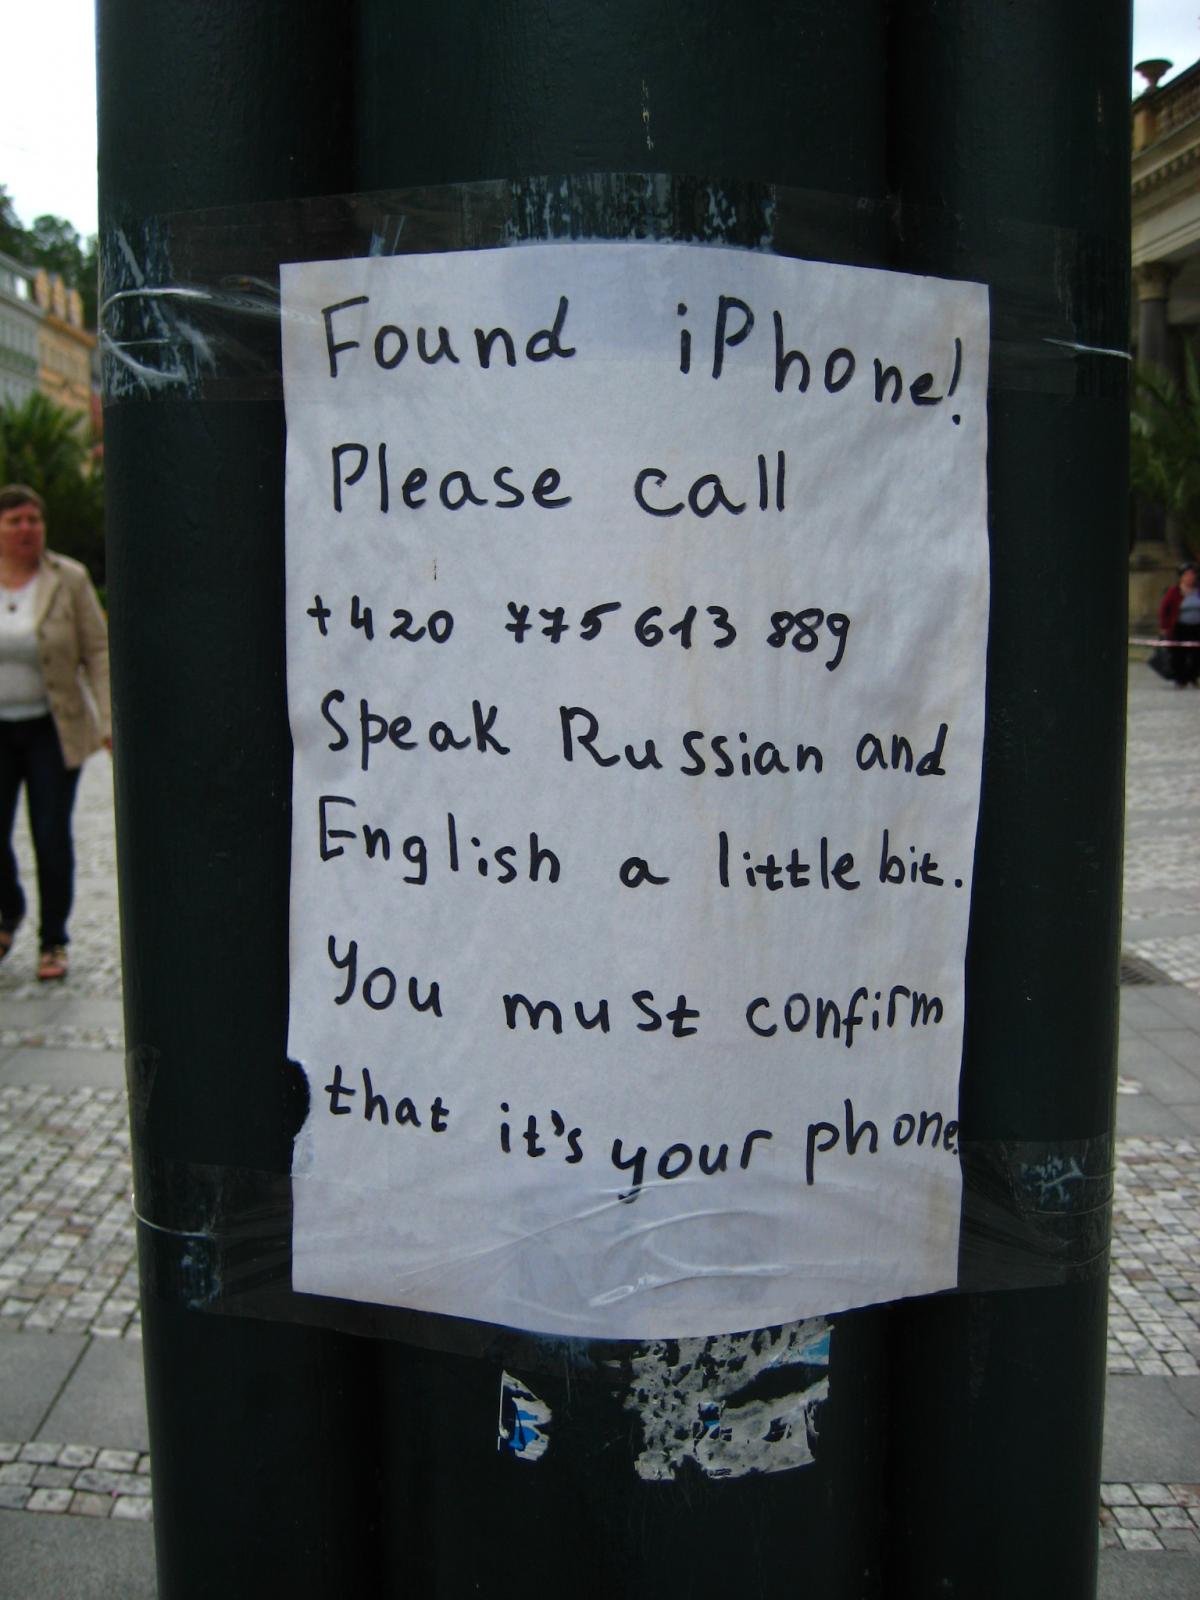 Found iPhone!
Please call
+420 775 613 889
Speak Russian and
English a little bit.
You must confirm
that it's your phone.